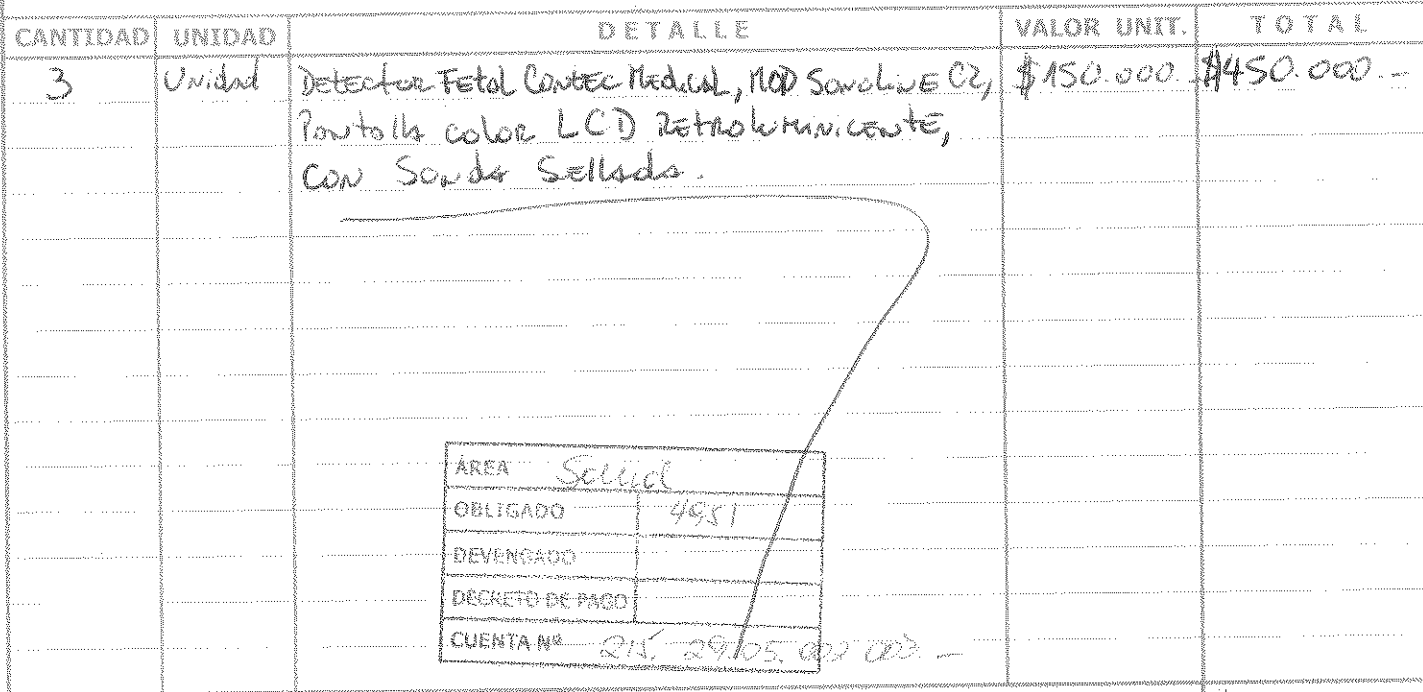 CANTIDAD UNIDAD DETALLE VALOR UNIT. TOTAL
3 Unidad Detector Fetal Contec Medical, MOD Sonoline C2, $150.000 $450.000.-
Pantalla color LCD Retroluminicente,
con Sonda Sellada.
ÁREA Salud
OBLIGADO 4951
DEVENGADO
DECRETO DE PAGO
CUENTA Nº 215. 29.05.002 003.-